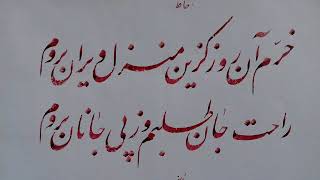 حافظ
خرّم آن روز کزین منزل ویران بروم
راحت جان طلبم وز پی جانان بروم